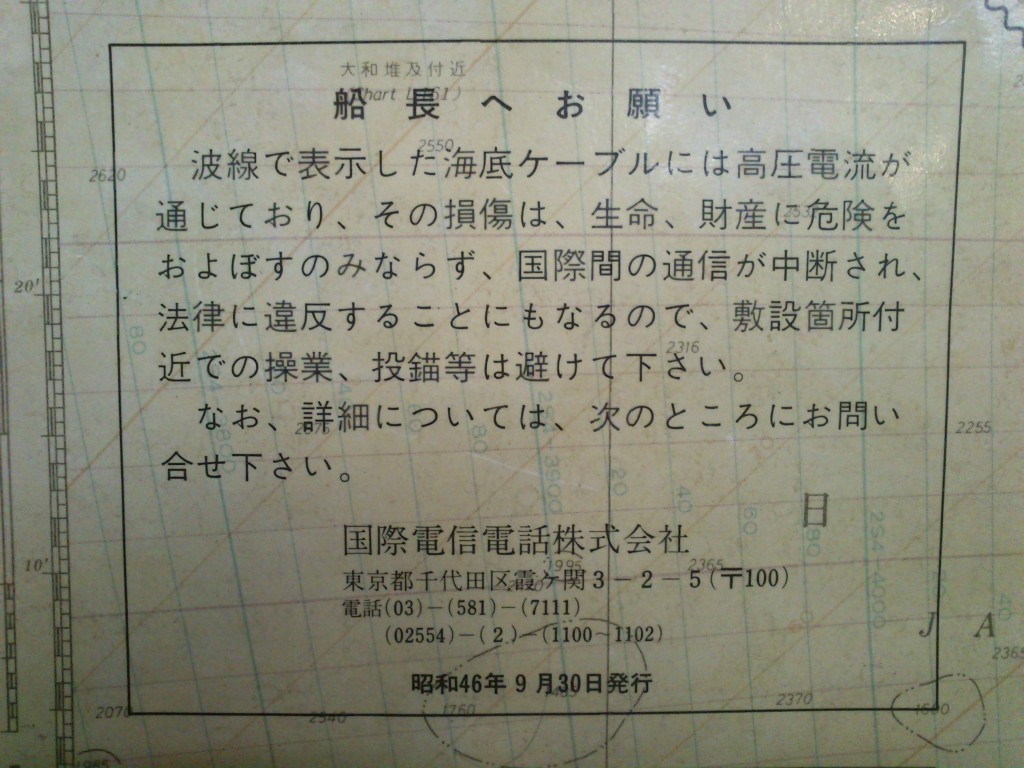 大和堆及付近
船長へお願い
波線で表示した海底ケーブルには高圧電流が
通じており、その損傷は、生命、財産に危険を
およぼすのみならず、国際間の通信が中断され、
法律に違反することにもなるので、敷設箇所付
近での操業、投錨等は避けて下さい。
なお、詳細については、次のところにお問い
合せ下さい。
国際電信電話株式会社
東京都千代田区霞ケ関3-2-5(〒100)
電話(03)-(581)-(7111)
(02554)-(2)-(1100~1102)
昭和46年9月30日発行
2620
2550
20'
2316
2255
日
10'
2365
J A
2365
2070
2540
1760
2370
80
80
20
40